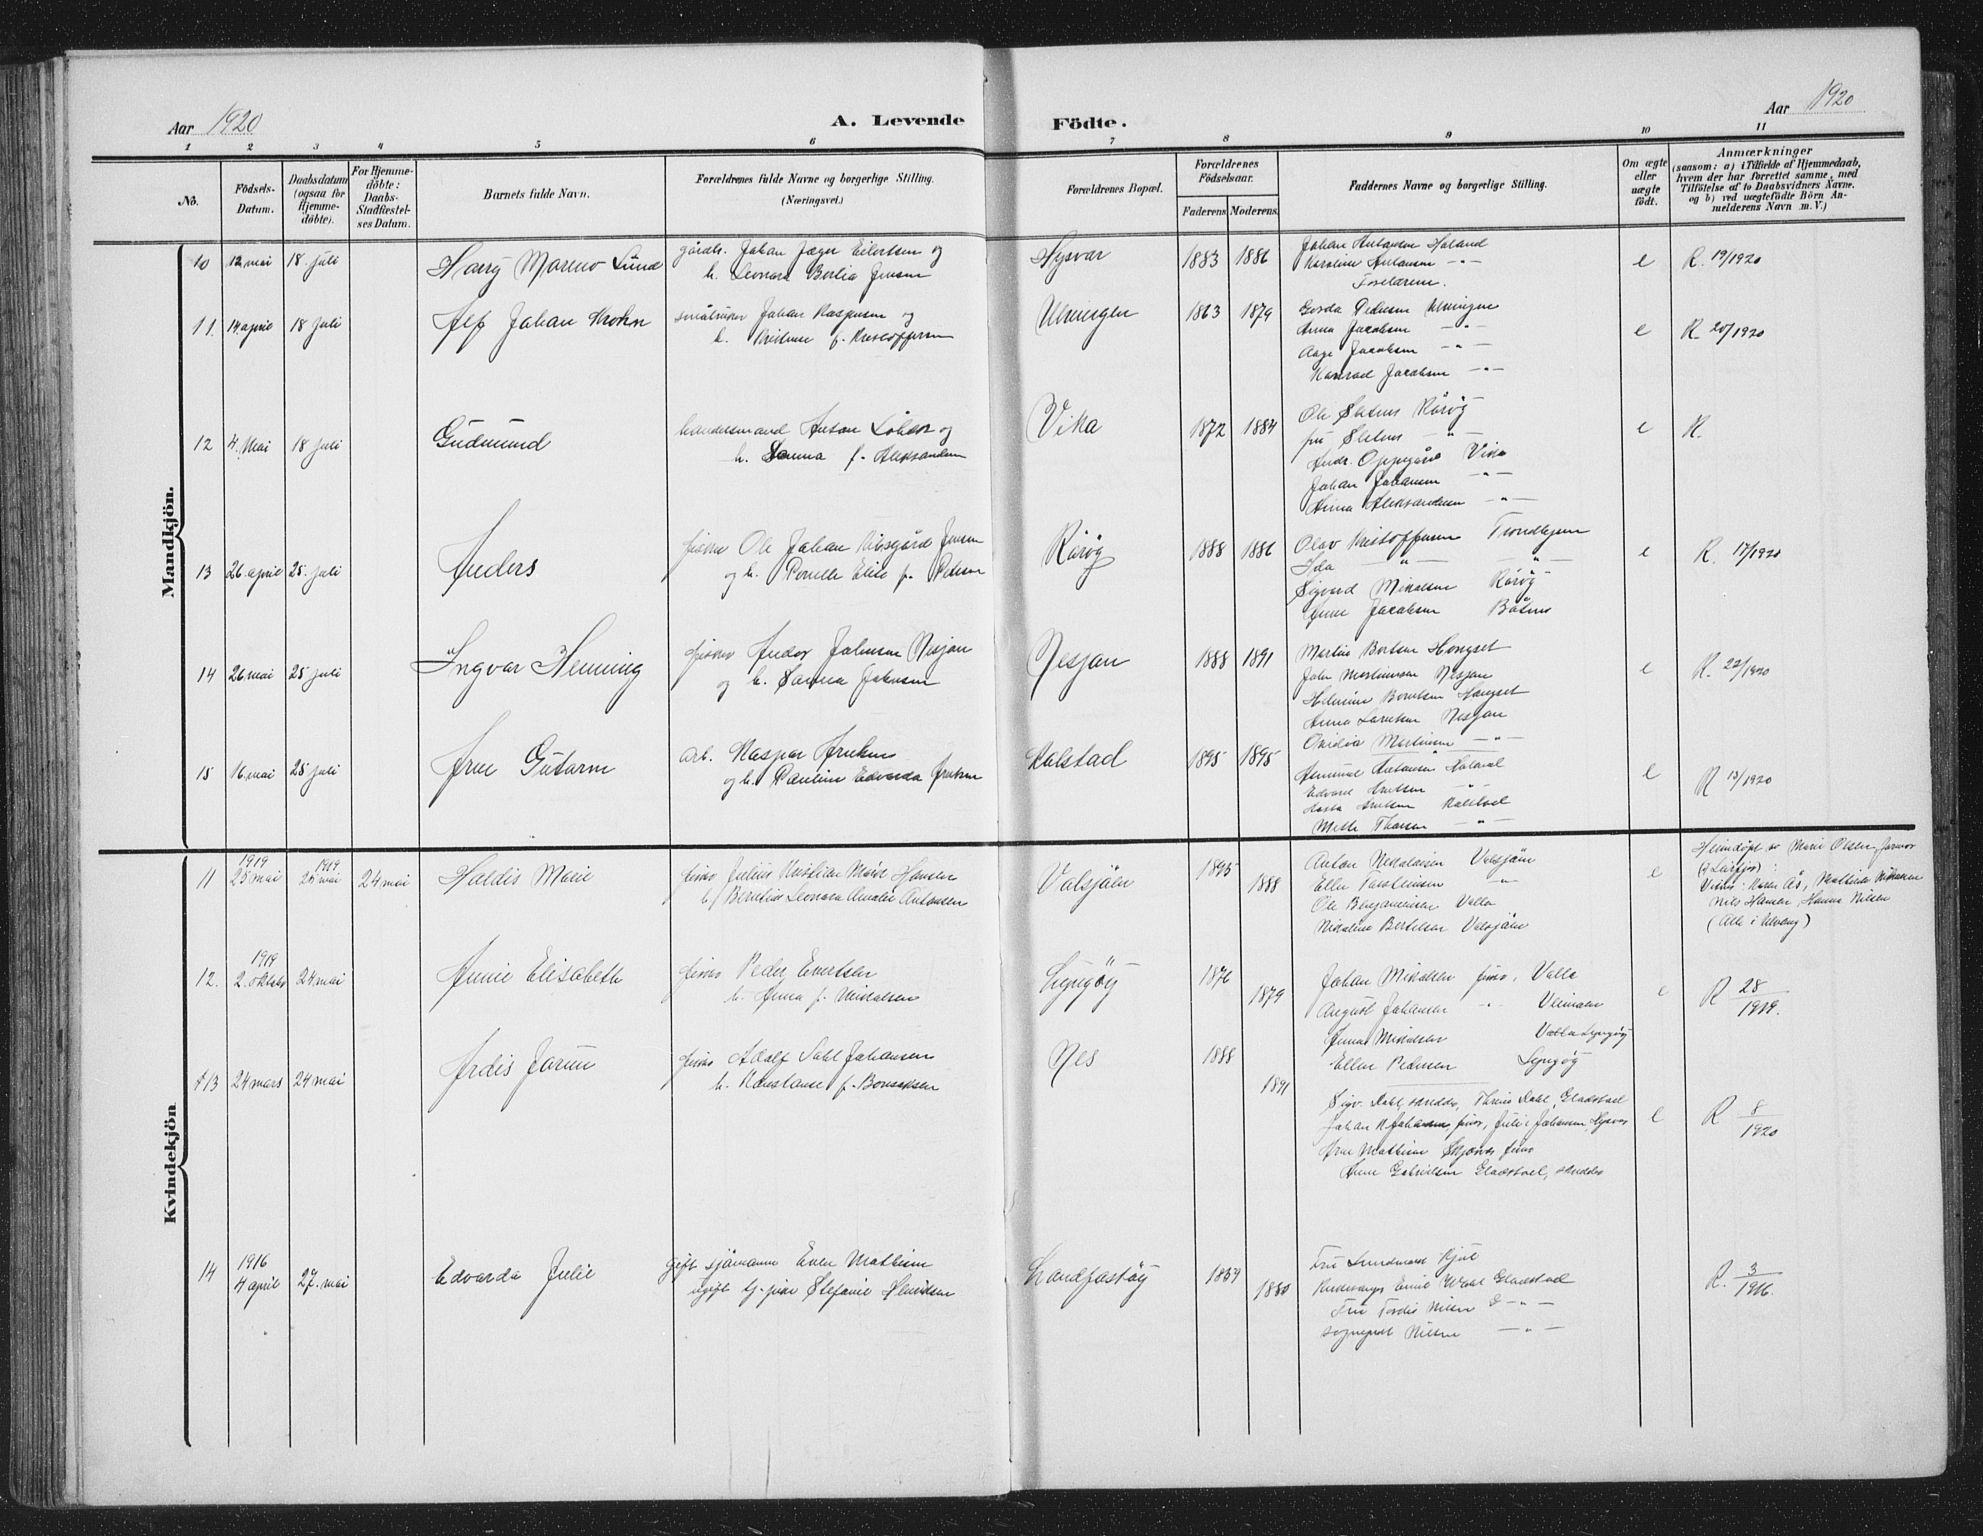 Aar 1920
A. Levende
Födte.
Aar 1920
1 2 3 4 5 6 7 8 9 10 11
No.
Födsels-
Datum.
Daabsdatum
(ogsaa for
Hjemme-
döbte).
For Hjemme-
döbte:
Daabs-
Stadfæstel-
ses Datum.
Barnets fulde Navn.
Forældrenes fulde Navne og borgerlige Stilling.
(Næringsvei.)
Forældrenes Bopæl.
Forældrenes
Födselsaar.
Faderens Moderens
Faddernes Navne og borgerlige Stilling.
Om ægte
eller
uægte
født.
Anmærkninger
(saasom: a) i Tilfælde af Hjemmedaab,
hvem der har forrettet samme, med
Tilföielse af to Daabsvidners Navne.
og b) ved uægtefödte Börn An-
melderens Navn m. V.)
Mandkjön.
10 12 mai 18 juli Harry Marino Lund
gårdb. Johan Jæger Eilertsen og
h. Leonara Bertia Jensen
Hysvær 1883 1886
Johan Antonsen Haland
Karoline Antonsen -"-
Foreldrene.
e R. 19/1920
11. 14 april 18 juli Alf Johan Krohn
småbruker Johan Kaspersen og
h. Kristine f. Kristoffersen
Ulvingen 1863 1879
Gerda Pedersen Ulvingen
Anna Jacobsen -"-
Aage Jacobsen -"-
Konrad Jacobsen -"-
e R. 20/1920
12 4. Mai 18 juli Gudmund
handelsmand Anton
h. Sanna f. Aleksandersen
Vika 1872 1884
Ole Rörøy
fru -"-
Andr. Oppegård Vika
Johan Johansen -"-
Anna Aleksandersen -"-
e R.
13 26 april 25. juli Anders
fisker Ole Johan Jensen
og h. Pernelle Elise f. Pedersen
Rörøy 1888 1886
Olav Kristoffersen Trondhjem
Ida -"- "
Sigvard Mikalsen Rörøy
Jacobsen Båsnes
e R. 17/1920
14 26 mai 25 juli Ingvar Henning
fisker Andor Johnsen Nesjan
og h. Sanna Johnsen
Nesjan 1888 1891
Martin Berntsen Hongset
John Martinussen Nesjan
Berntsen Hongset
Anna Larntsen Nesjan
Ovidia Martinsen -"-
e R. 22/1920
15 16. mai 25 juli Arne Gutorm
arb. Kaspar
og h. Pauline Edvarda
Kalstad 1895 1895
Antonsen Haland
Edvard -"-
Kalstad
Mette Thorsen -"-
e R 13/1920
Kvindekjön
11 1919 25 mai 1919 26 mai 24 mai Haldis Marie
fisker Julius Kristian Mørk Hansen
h/ Berntine Leonara Amalie Antonsen
Valsjöen 1895 1888
Anton Nikolaisen Valsjöen
Ellen Torstensen "
Ole Benjaminsen Valla
Nikoline Bertelsen Valsjöen
e Heimdöpt av Marie Olsen, Jarmor
Vitner: Karen Ås, Mathilde
Nils Hansen, Hanna Nilsen
(Alle i Alveng)
12. 1919 2. oktober 24 mai Annie Elisabeth
fisker Peder Evertsen
h. Anna f. Mikalsen
Lyngöy 1876 1879
Johan Mikalsen fisker, Valla
August Johansen -"-
Anna Mikalsen Valla Lyngöy
Ellen Pedersen Lyngöy
e R 28/1919.
13 24 mars 24 mai Ardis Jorun
fisker Adolf Johansen
h. Konstanse f. Bonsaksen
Nes 1888 1891
Sigv. Dahl, skredder, Thrine Dahl, Gladstad
Johan N Johansen, fisker, Julie Johansen, Hysvær
Arne Mathisen Skjærvær, fisker
Anne Gabrielsen Gladstad, skredder
e R 8/1920
14 1916 4 april 27. mai Edvarda Julie
gift sjömann Even Mathisen
ugift tj. pike Stefanie
Landfastöy 1859 1880
Fru Sundmoed
Emil Gladstad
Fru Tordis Nilsen -"-
sogneprest Nilsen -"-
R. 3/1916.